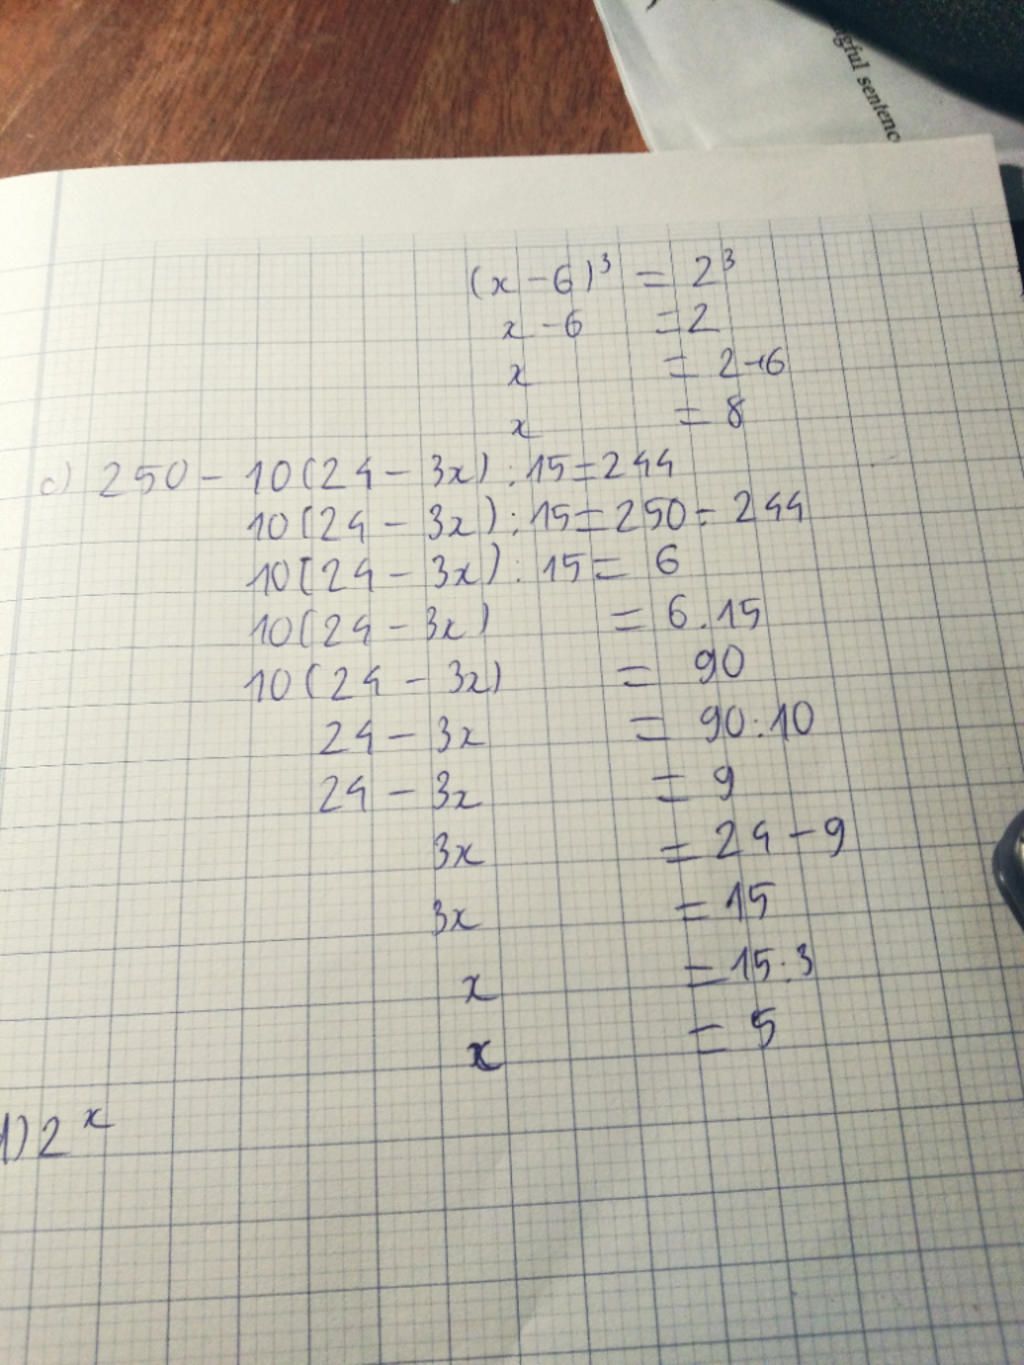 gful sentenc
(x - 6)³ = 2³
x - 6 = 2
x = 2+6
x = 8
c) 250 - 10(24 - 3x) : 15 = 244
10(24 - 3x) : 15 = 250 - 244
10(24 - 3x) : 15 = 6
10(24 - 3x) = 6.15
10(24 - 3x) = 90
24 - 3x = 90:10
24 - 3x = 9
3x = 24 - 9
3x = 15
x = 15:3
x = 5
1) 2ˣ